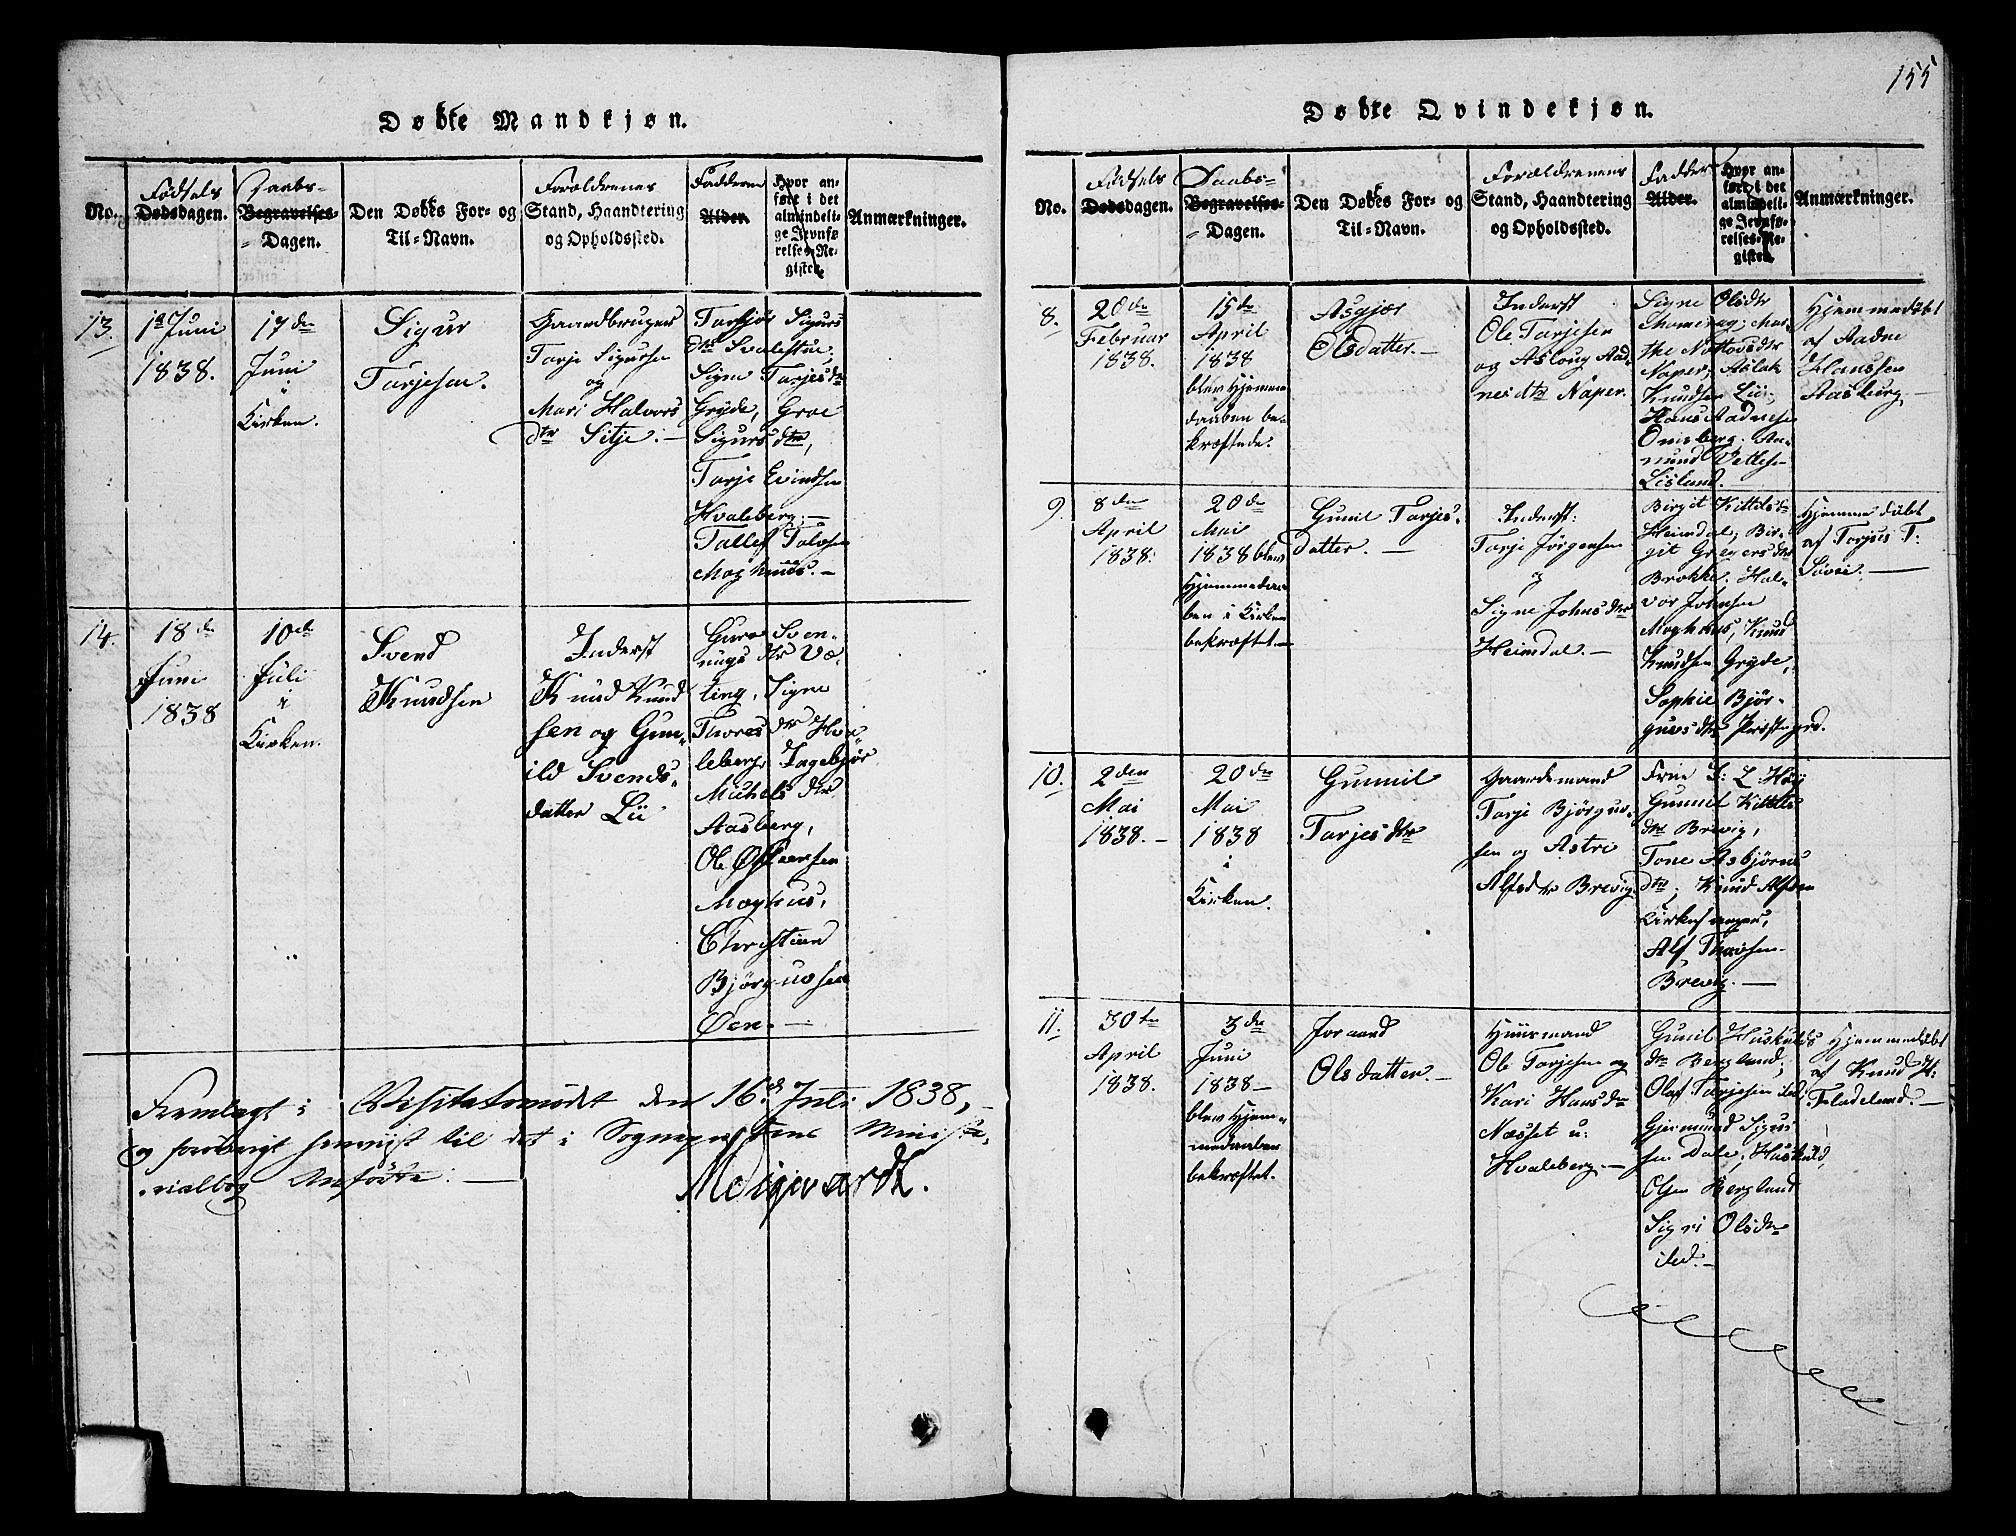 155
Døbte Mandkjøn.
No.
Fødsels
Dødsdagen.
Daabs-
Begravelses-
Dagen.
Den Døbtes For- og
Til-Navn.
Forældrenes
Stand, Haandtering
og Opholdssted.
Faddere
Alder.
Hvor an-
ført i det
almindeli-
ge Jevnfø-
relses-Re-
gister.
Anmærkninger.
13.
1ste Juni
1838.
17de
Juni
i
Kirken.
Sigur
Tarjesen.
Gaardbruger
Tarje Sigursen
og
Mari Halvors
dtr Sitje.
Torbjør Sigurs
dtr Svalestue,
Signe Tarjesdtr
Gryde, Groe
Sigursdtr,
Tarje Evindsen
Hvaleberg.
Tallef Talofsen
Moghuus.
14.
18de
Juni
1838
10de
Juli
i
Kirken.
Svend
Knudsen
Inderst
Knud Knud
sen og Gun-
ild Svends-
datter Lii
Guro Sven-
nungs dtr Væ-
ting, Signe
Thores dtr Hva-
leberg, Ingebjør
Michels dtr
Aasberg,
Ole Østensen
Moghus,
Christian
Bjørguvsen
Øen.
Fremlagt i Visitatsmødet den 16de Juli 1838,
og forøvrigt henviist til det i Sognepræstens Ministe-
rialbog Anførte.
M. Sigwardt.
Døbte Qvindekjøn.
No.
Fødsels
Dødsdagen.
Daabs-
Begravelses-
Dagen.
Den Døbtes For- og
Til-Navn.
Forældrenes
Stand, Haandtering
og Opholdssted.
Fadder
Alder.
Hvor an-
ført i det
almindeli-
ge Jevnfø-
relses-Re-
gister.
Anmærkninger.
8.
20de
Februar
1838.
15de
April
1838
blev Hjemme
daaben be-
kræftede.
Asgjær
Olsdatter.
Inderst
Ole Tarjesen
og Asloug Aad-
nesdtr Naper.
Signe Olsdtr
Mar-
the Nottovsdtr
Naper, Aslak
Knudsen Lii,
Hans Aadnesen
Omsberg, An-
mund Vetlesen
Lisland.
Hjemmedøbt
af Aadne
Hanssen
Aasburg.
9.
8de
April
1838.
20de
Mai
1838 blev
Hjemmedaa-
ben i Kirken
bekræftet.
Gunil Tarjes-
datter.
Inderst:
Tarje Jørgensen
og
Signe Johnsdtr
Heimdal.
Birgit Kittilsdtr
Heimdal, Bir-
git Gregersdtr
Brokke, Hal-
vor Johnsen
Moghuus, Knud
Knudsen Gryde,
Sophie Bjør-
guvsdtr Præstegrd.
Hjemmedøbt
af Torjus T.
10.
2den
Mai
1838.
20de
Mai
1838
i
Kirken.
Gunnil
Tarjesdtr
Gaardemand
Tarje Bjørguv-
sen og Astri
Alfsdtr Brevig.
Frue
Gunnil Kittils
dtr Brevig,
Tone Asbjørns
dtr, Knud Alfsen
Kirkesanger,
Alf Thovsen
Brevig.
11.
30te
April
1838.
3de
Juni
1838
blev Hjem-
medaaben
bekræftet.
Joraand
Olsdatter.
Huusmand
Ole Tarjesen og
Kari Hansdtr
Næsset u:
Hvaleberg.
Gunil Huskulds
dtr Bergland,
Olaf Tarjesen ibd,
Gjermund Sigur
sen Dale, Huskuld
Olsen Bergland
Sigri Olsdtr
ibd.
Hjemmedøbt
af Knud H.
Fladeland.